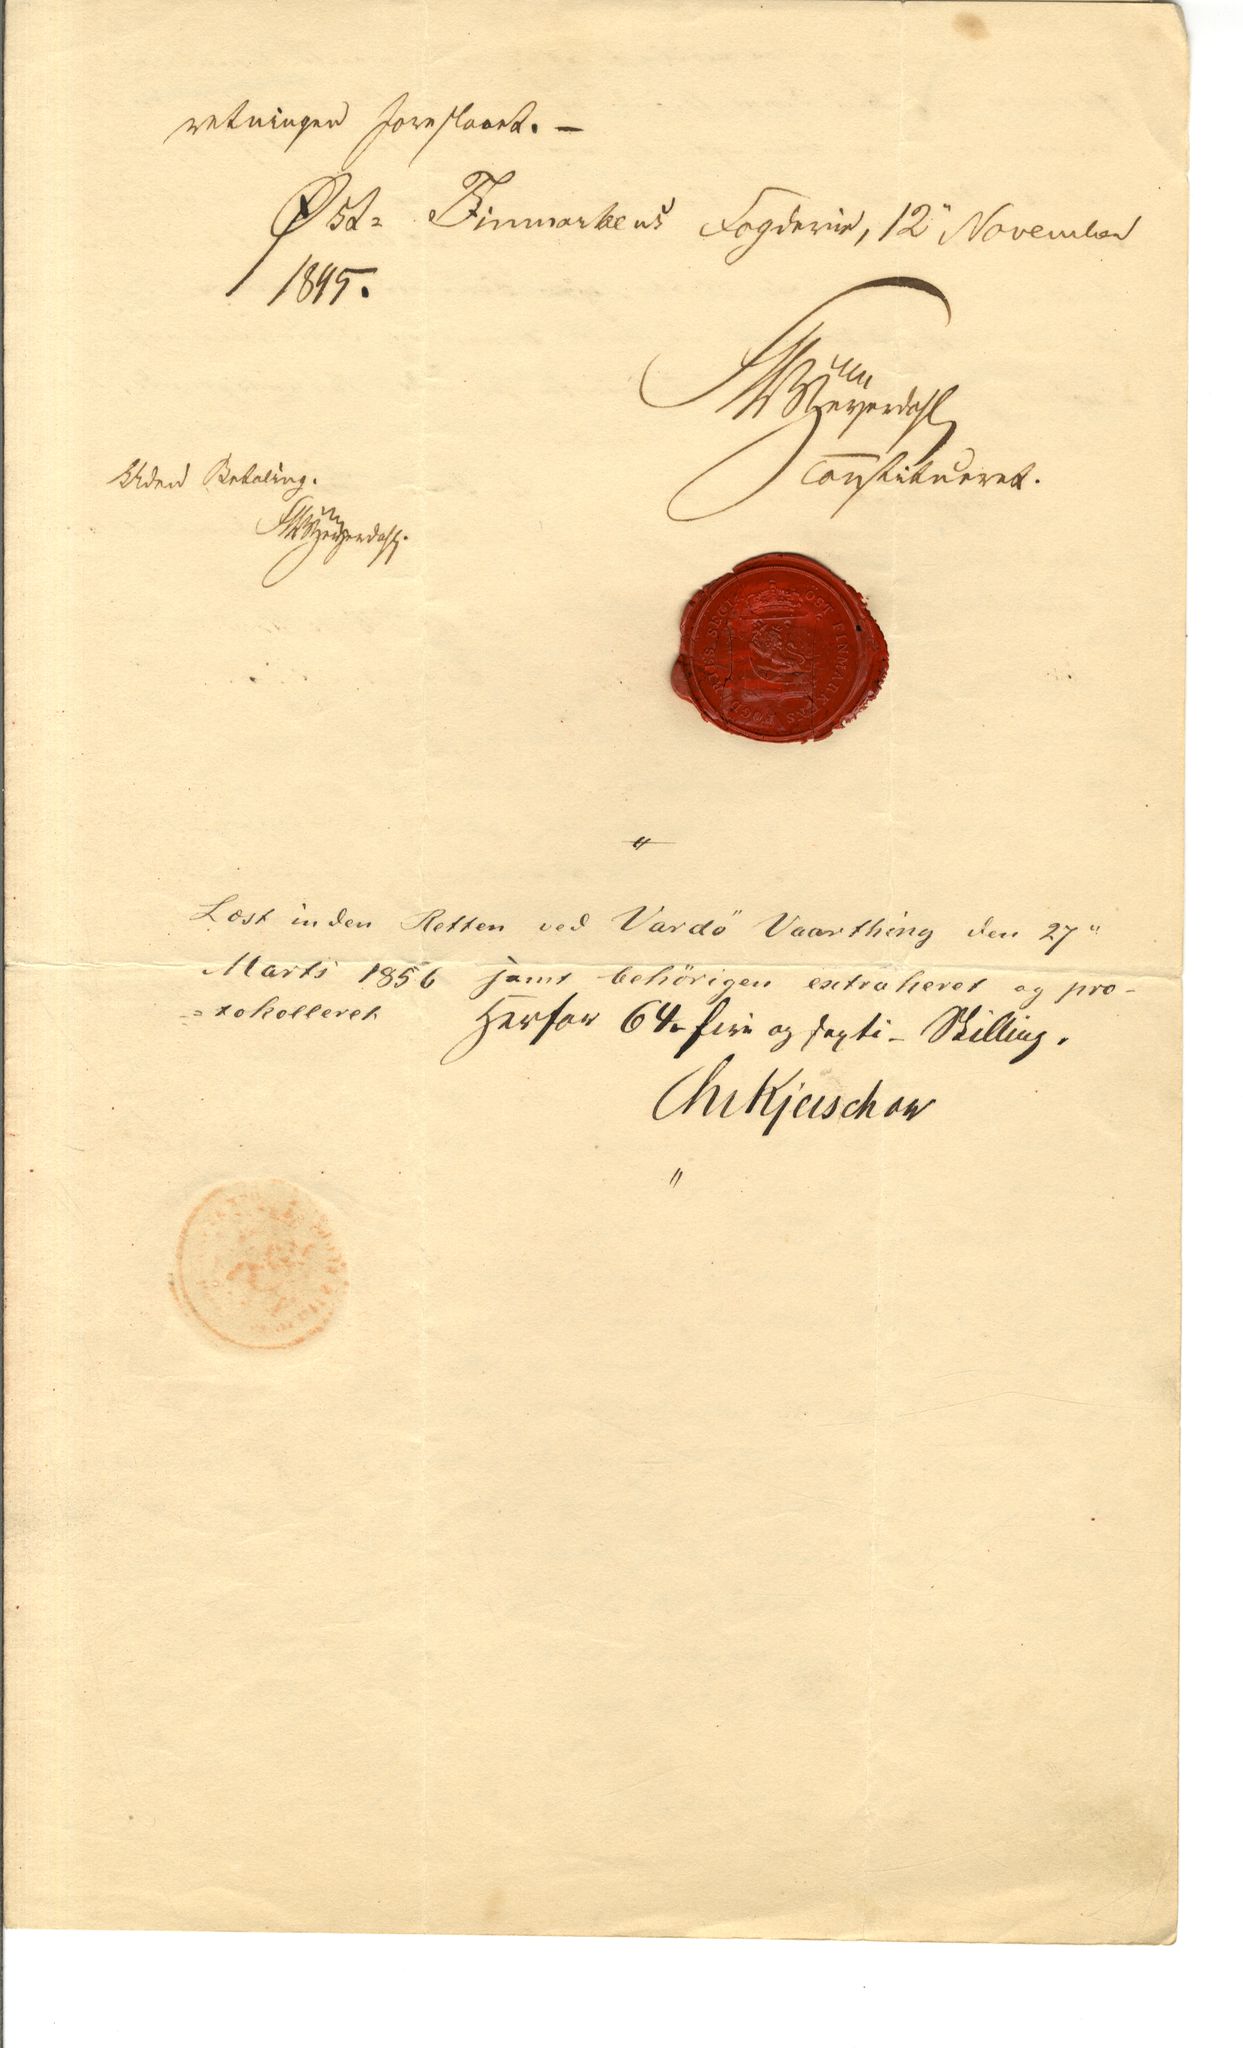 retningen foreslaaet. –
Øst= Finmarkens Fogderie, 12" November
1855.
Heyerdahl
Constitueret.
Uden Betaling.
Heyerdahl.
ÖST FINMARKENS FOGDERIES SEGL
"
Læst inden Retten ved Vardö Vaarthing den 27"
Marts 1856 samt behörigen extraheret og pro-
=tokolleret Herfor 64- fire og sexti - Skilling.
Chr Kjerschow
"